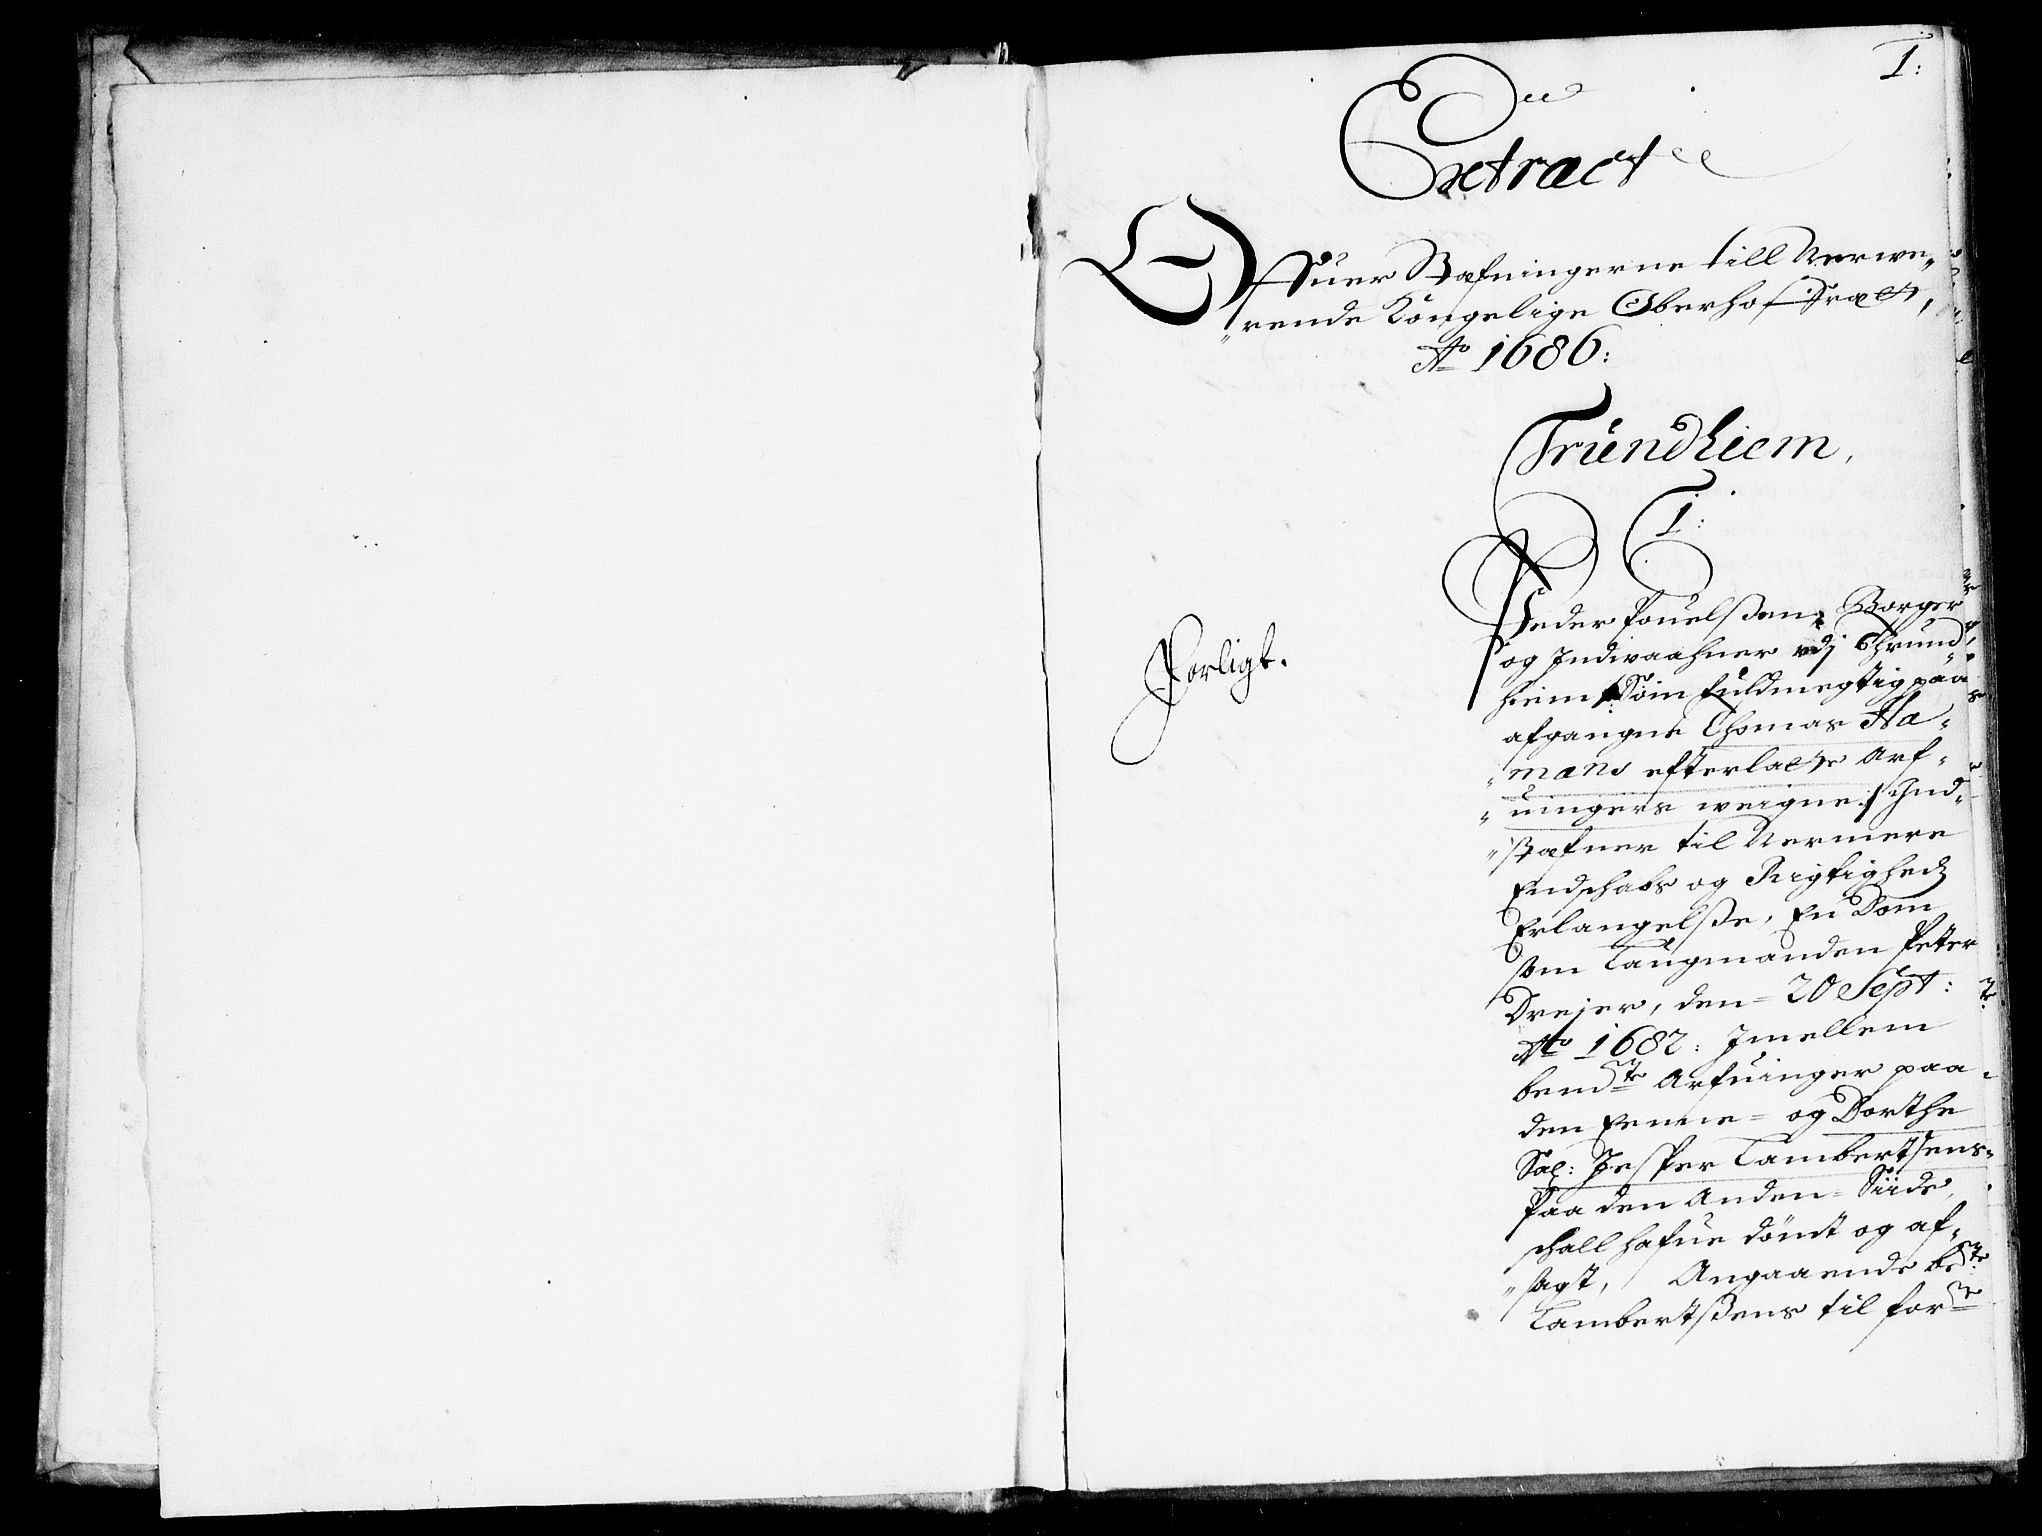 1:
Extract
Offuer Stæfningerne till Nerwe„
„rende Kongelige Oberhoffræt,
Ao 1686:
Trundhiem,
1:
Forligt.
Peder Pouelßen, Borger
og Indwaahner udj Thrund„
hiem, Som fuldmegtig paa
afgangne Thomas Ha„
„mans efterlatte Arf„
„uingers weigne, Ind„
„stæfner til Nermere
Endschabs og Rigtigheds
Erlangelße, En Dom
som Laugmanden Petter
Dreier, den 20 Sept:
Ao 1682: Imellem
bemdte Arfuinger paa
den Eenne og Dorthe
Sal: Jesper Lambertsens
Paa den Anden Siide,
schall hafue dömt og af„
„sagt, Angaaende bedte
Lambertßens til forne